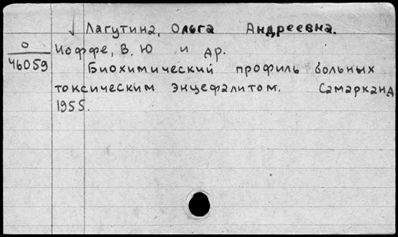 ↓ Лагутина, Ольга Андреевна.
О
46059
Иоффе, В. Ю и др.
Биохимический профиль больных
токсическим энцефалитом. Самарканд
1955.